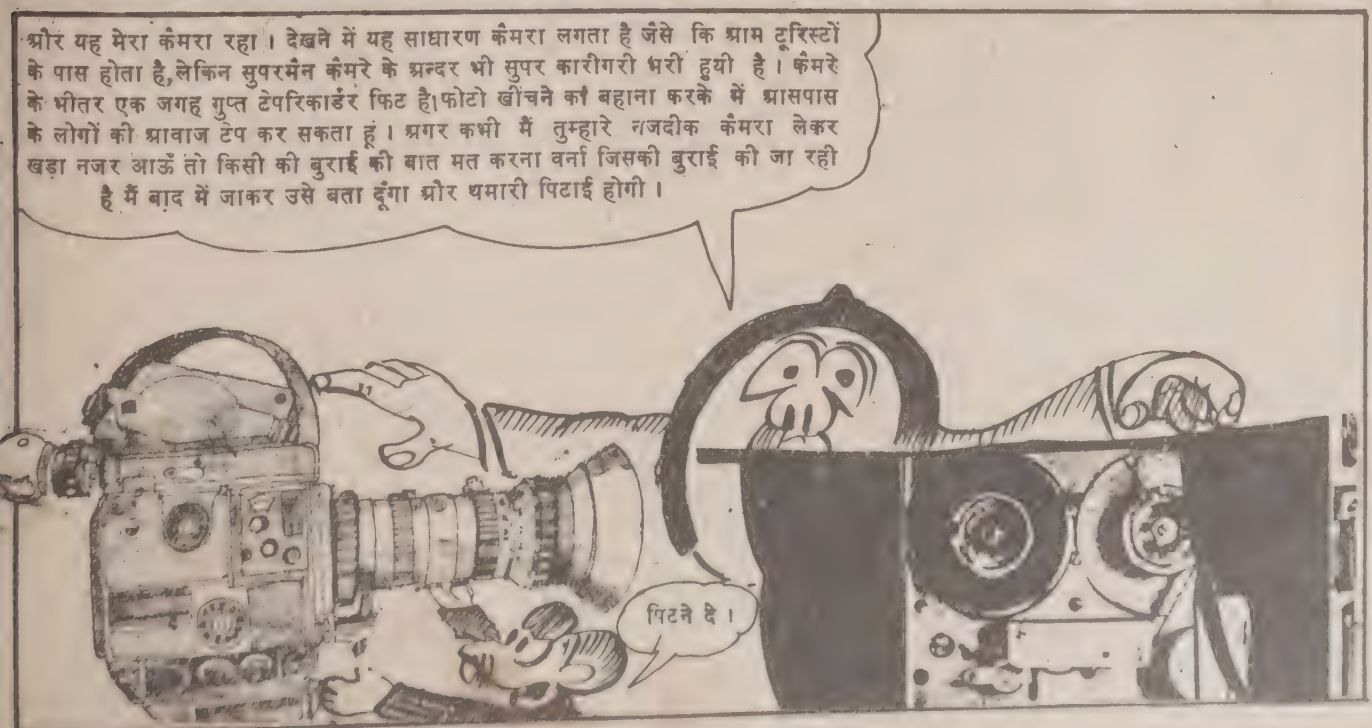 और यह मेरा कैमरा रहा । देखने में यह साधारण कैमरा लगता है जैसे कि आम टूरिस्टों
के पास होता है, लेकिन सुपरमैन कैमरे के अन्दर भी सुपर कारीगरी भरी हुयी है । कैमरे
के भीतर एक जगह गुप्त टेपरिकार्डर फिट है। फोटो खींचने का बहाना करके में आसपास
के लोगों की आवाज टेप कर सकता हूं । अगर कभी मैं तुम्हारे नजदीक कैमरा लेकर
खड़ा नजर आऊँ तो किसी की बुराई की बात मत करना वर्ना जिसकी बुराई की जा रही
है मैं बाद में जाकर उसे बता दूँगा और थमारी पिटाई होगी ।
पिटने दे ।